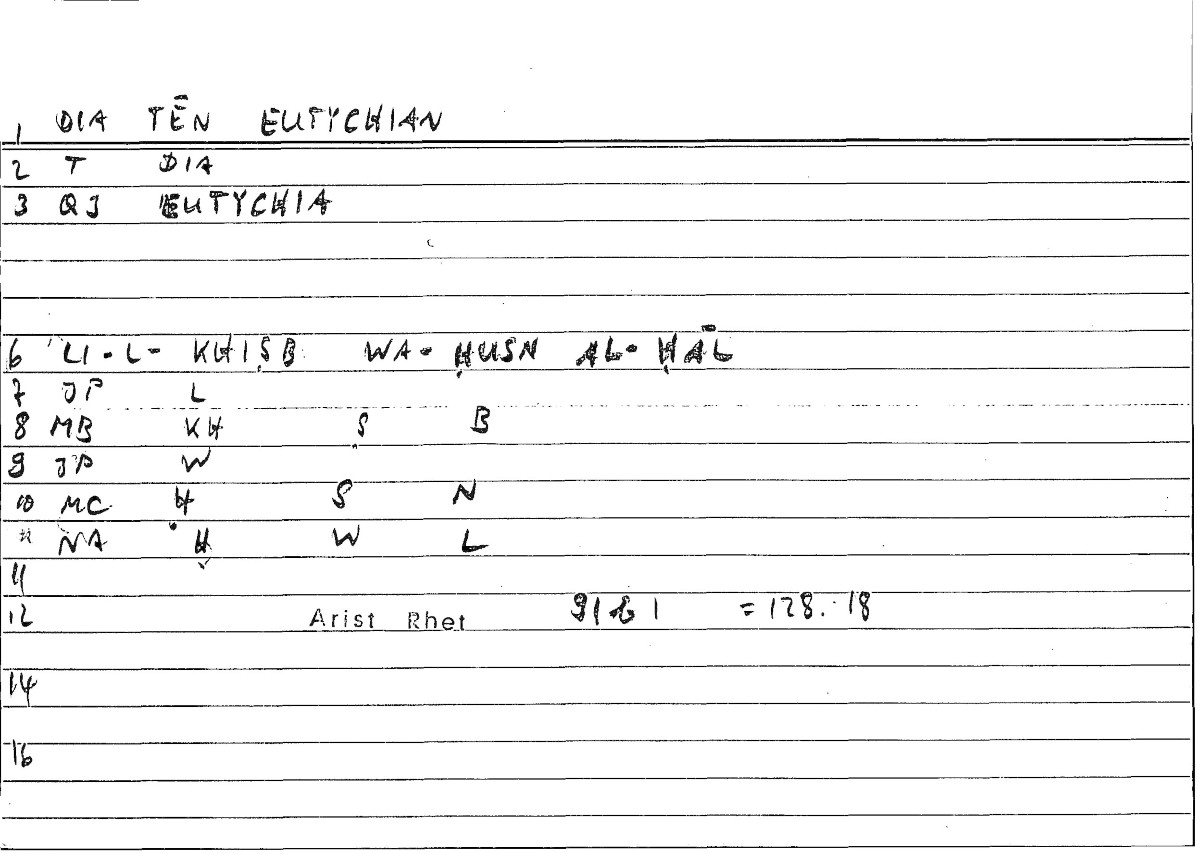 1 DIA TĒN EUTYCHIAN
2 T DIA
3 QJ EUTYCHIA
6 LI-L- KHIṢB WA- ḤUSN AL-ḤĀL
7 JP L
8 MB KH Ṣ B
9 JP W
10 MC Ḥ S N
* NA Ḥ W L
11
12 Arist Rhet 91 b 1 = 128.18
14
16